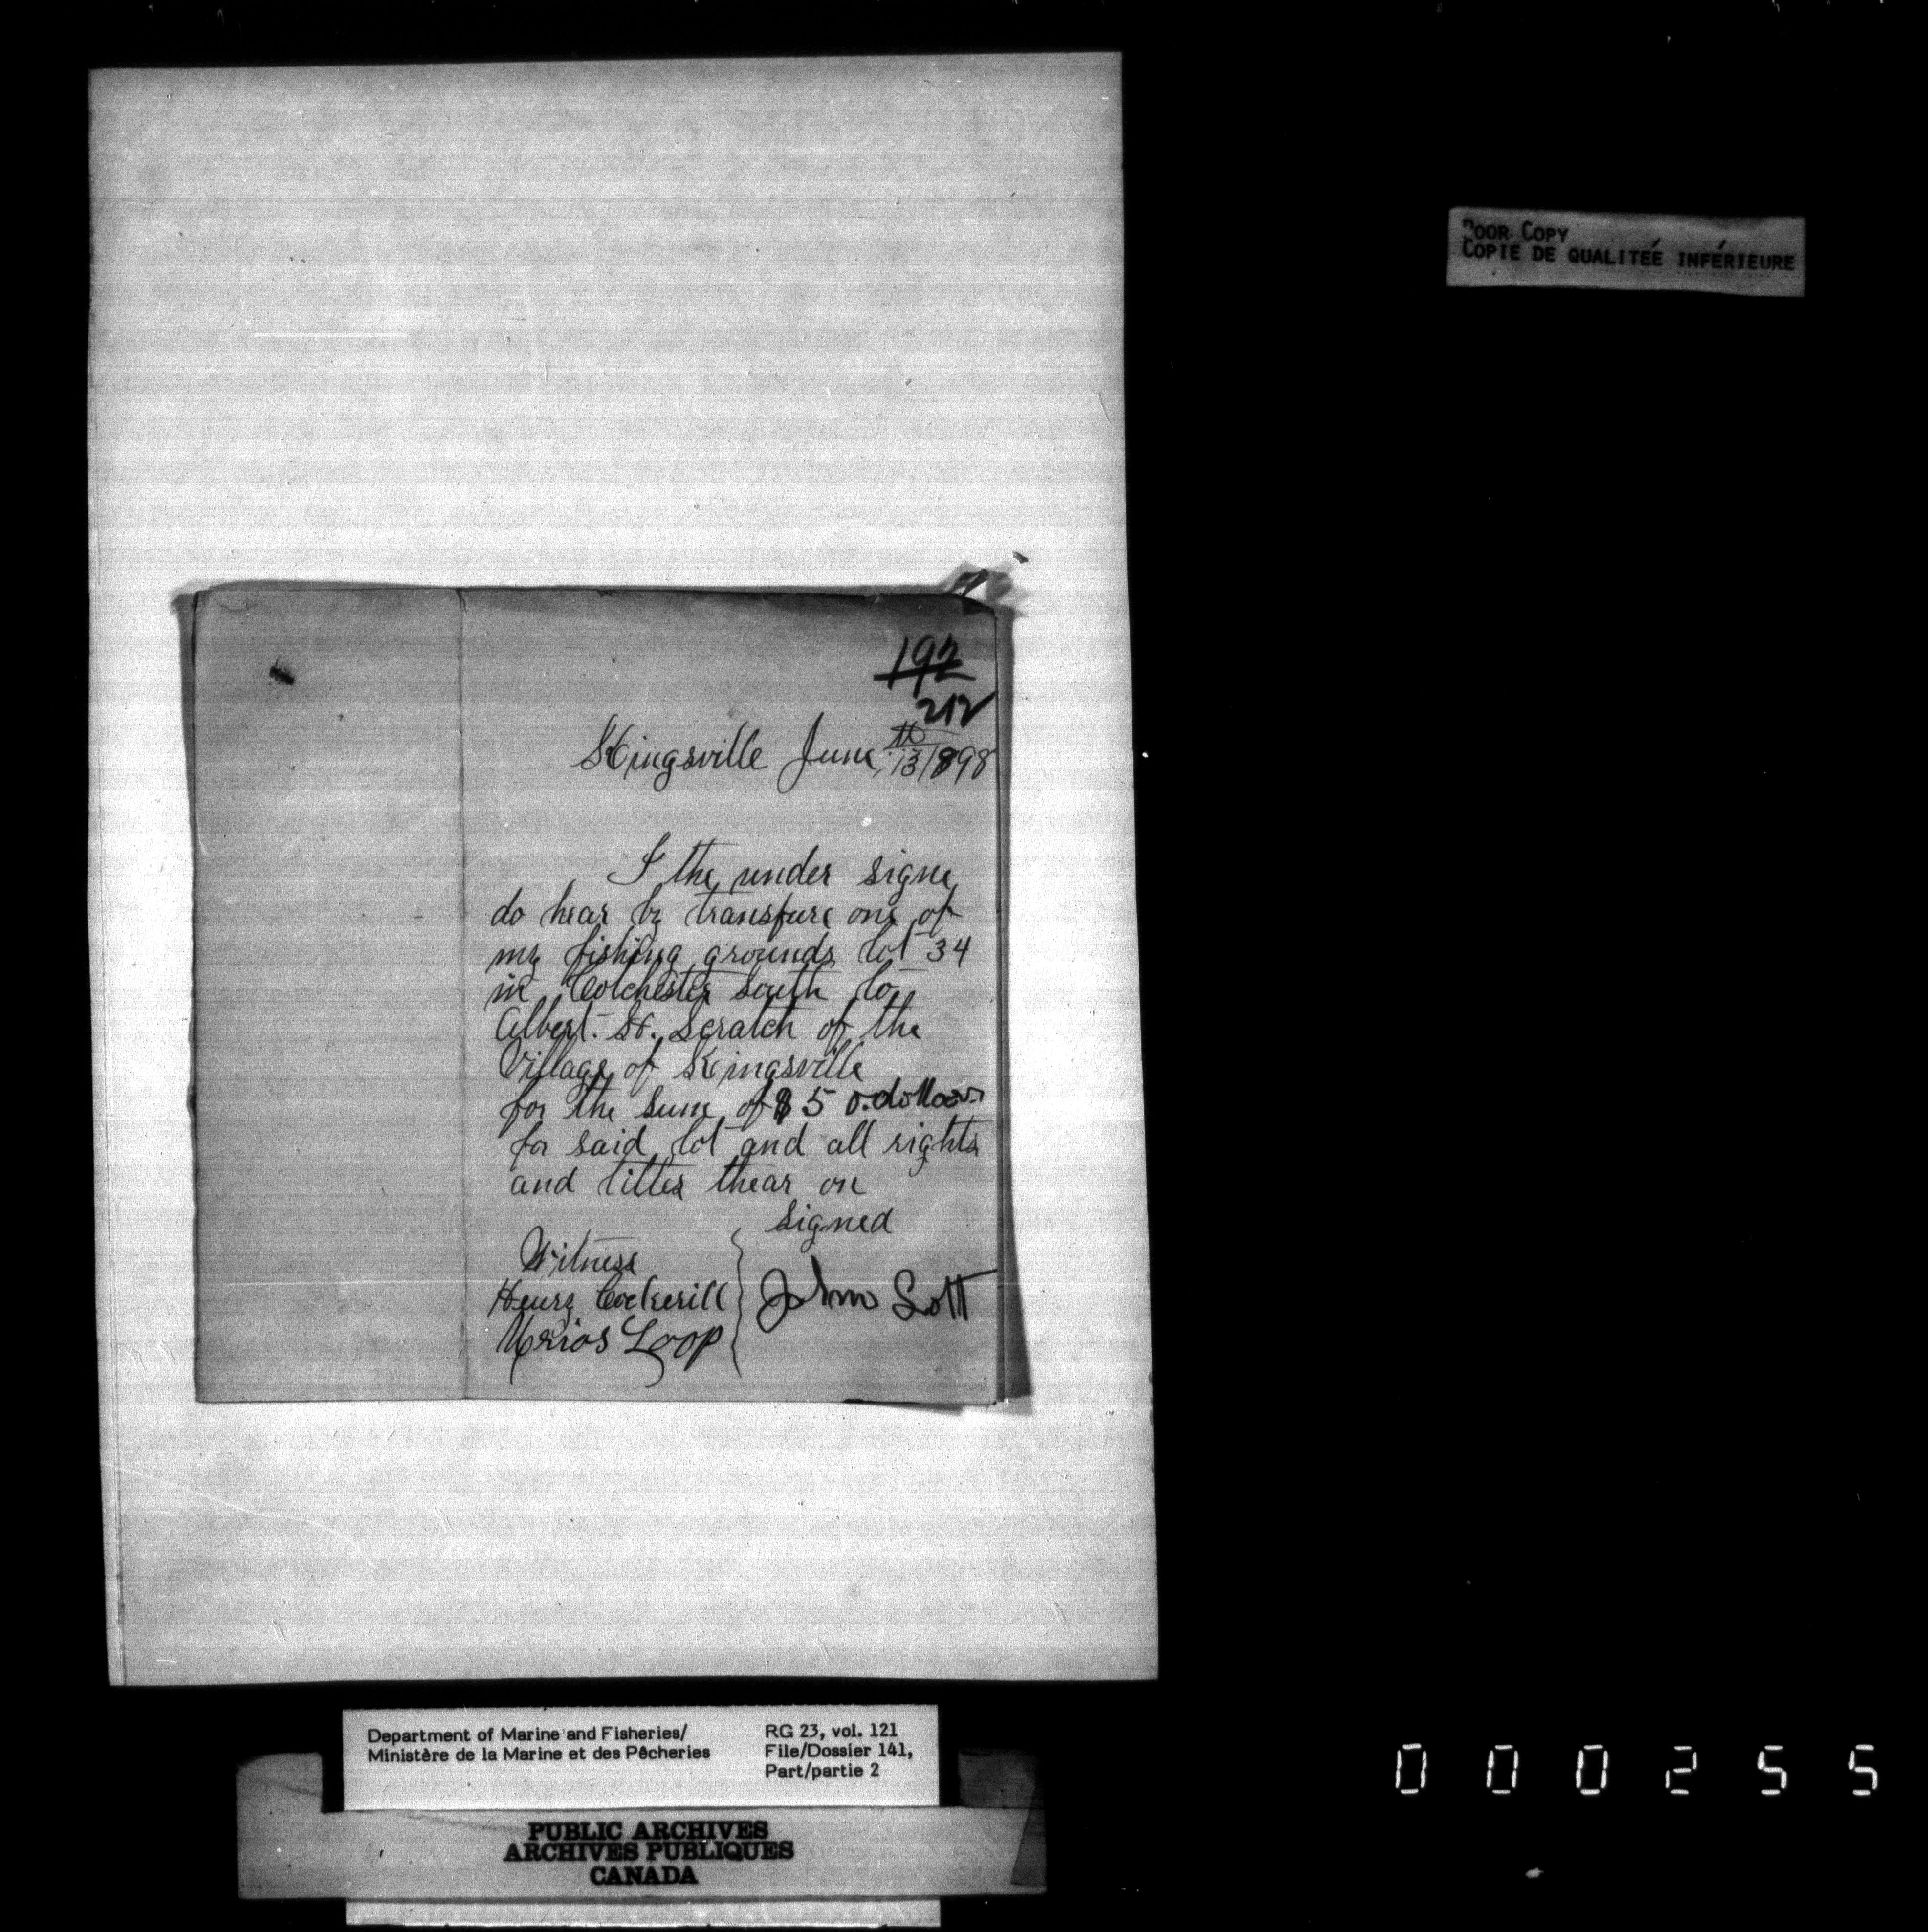 POOR COPY
COPIE DE QUALITEÉ INFÉRIEURE
192
212
Kingsville June 13th/898
I the under signe
do hear by transfure one of
my fishing grounds lot 34
in Colchester south to
Albert. St. Scratch of the
Village of Kingsville
for the sum of $50.dollars
for said lot and all rights
and titles thear on
signed
Witness
Henry Cockerill
John Lott
Urias Loop
Department of Marine and Fisheries/
Ministère de la Marine et des Pêcheries
RG 23, vol. 121
File/Dossier 141,
Part/partie 2
PUBLIC ARCHIVES
ARCHIVES PUBLIQUES
CANADA
000255